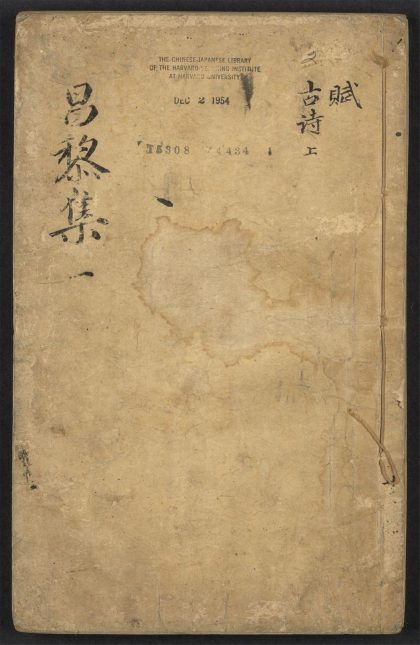 賦
古詩 上
昌黎集 一
THE CHINESE-JAPANESE LIBRARY
OF THE HARVARD-YENCHING INSTITUTE
AT HARVARD UNIVERSITY
DEC 2 1954